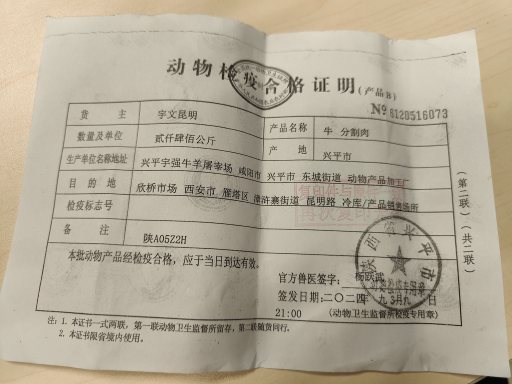 动物检疫合格证明(产品B)
№ 6120516073
货 主 宇文昆明 产品名称 牛 分割肉
数量及单位 贰仟肆佰公斤 产 地 兴平市
生产单位名称地址 兴平宇强牛羊屠宰场 咸阳市 兴平市 东城街道 动物产品加工厂
目 的 地 欣桥市场 西安市 雁塔区 漳浒寨街道 昆明路 冷库/产品销售场所
检疫标志号
备 注 陕A05Z2H
本批动物产品经检疫合格，应于当日到达有效。
官方兽医签字: 杨跃武
签发日期:二〇二四年九月九日
21:00 (动物卫生监督所检疫专用章)
注: 1. 本证书一式两联，第一联动物卫生监督所留存，第二联随货同行。
2. 本证书限省境内使用。
(第二联)(共二联)
再次复印
陕西省兴平市